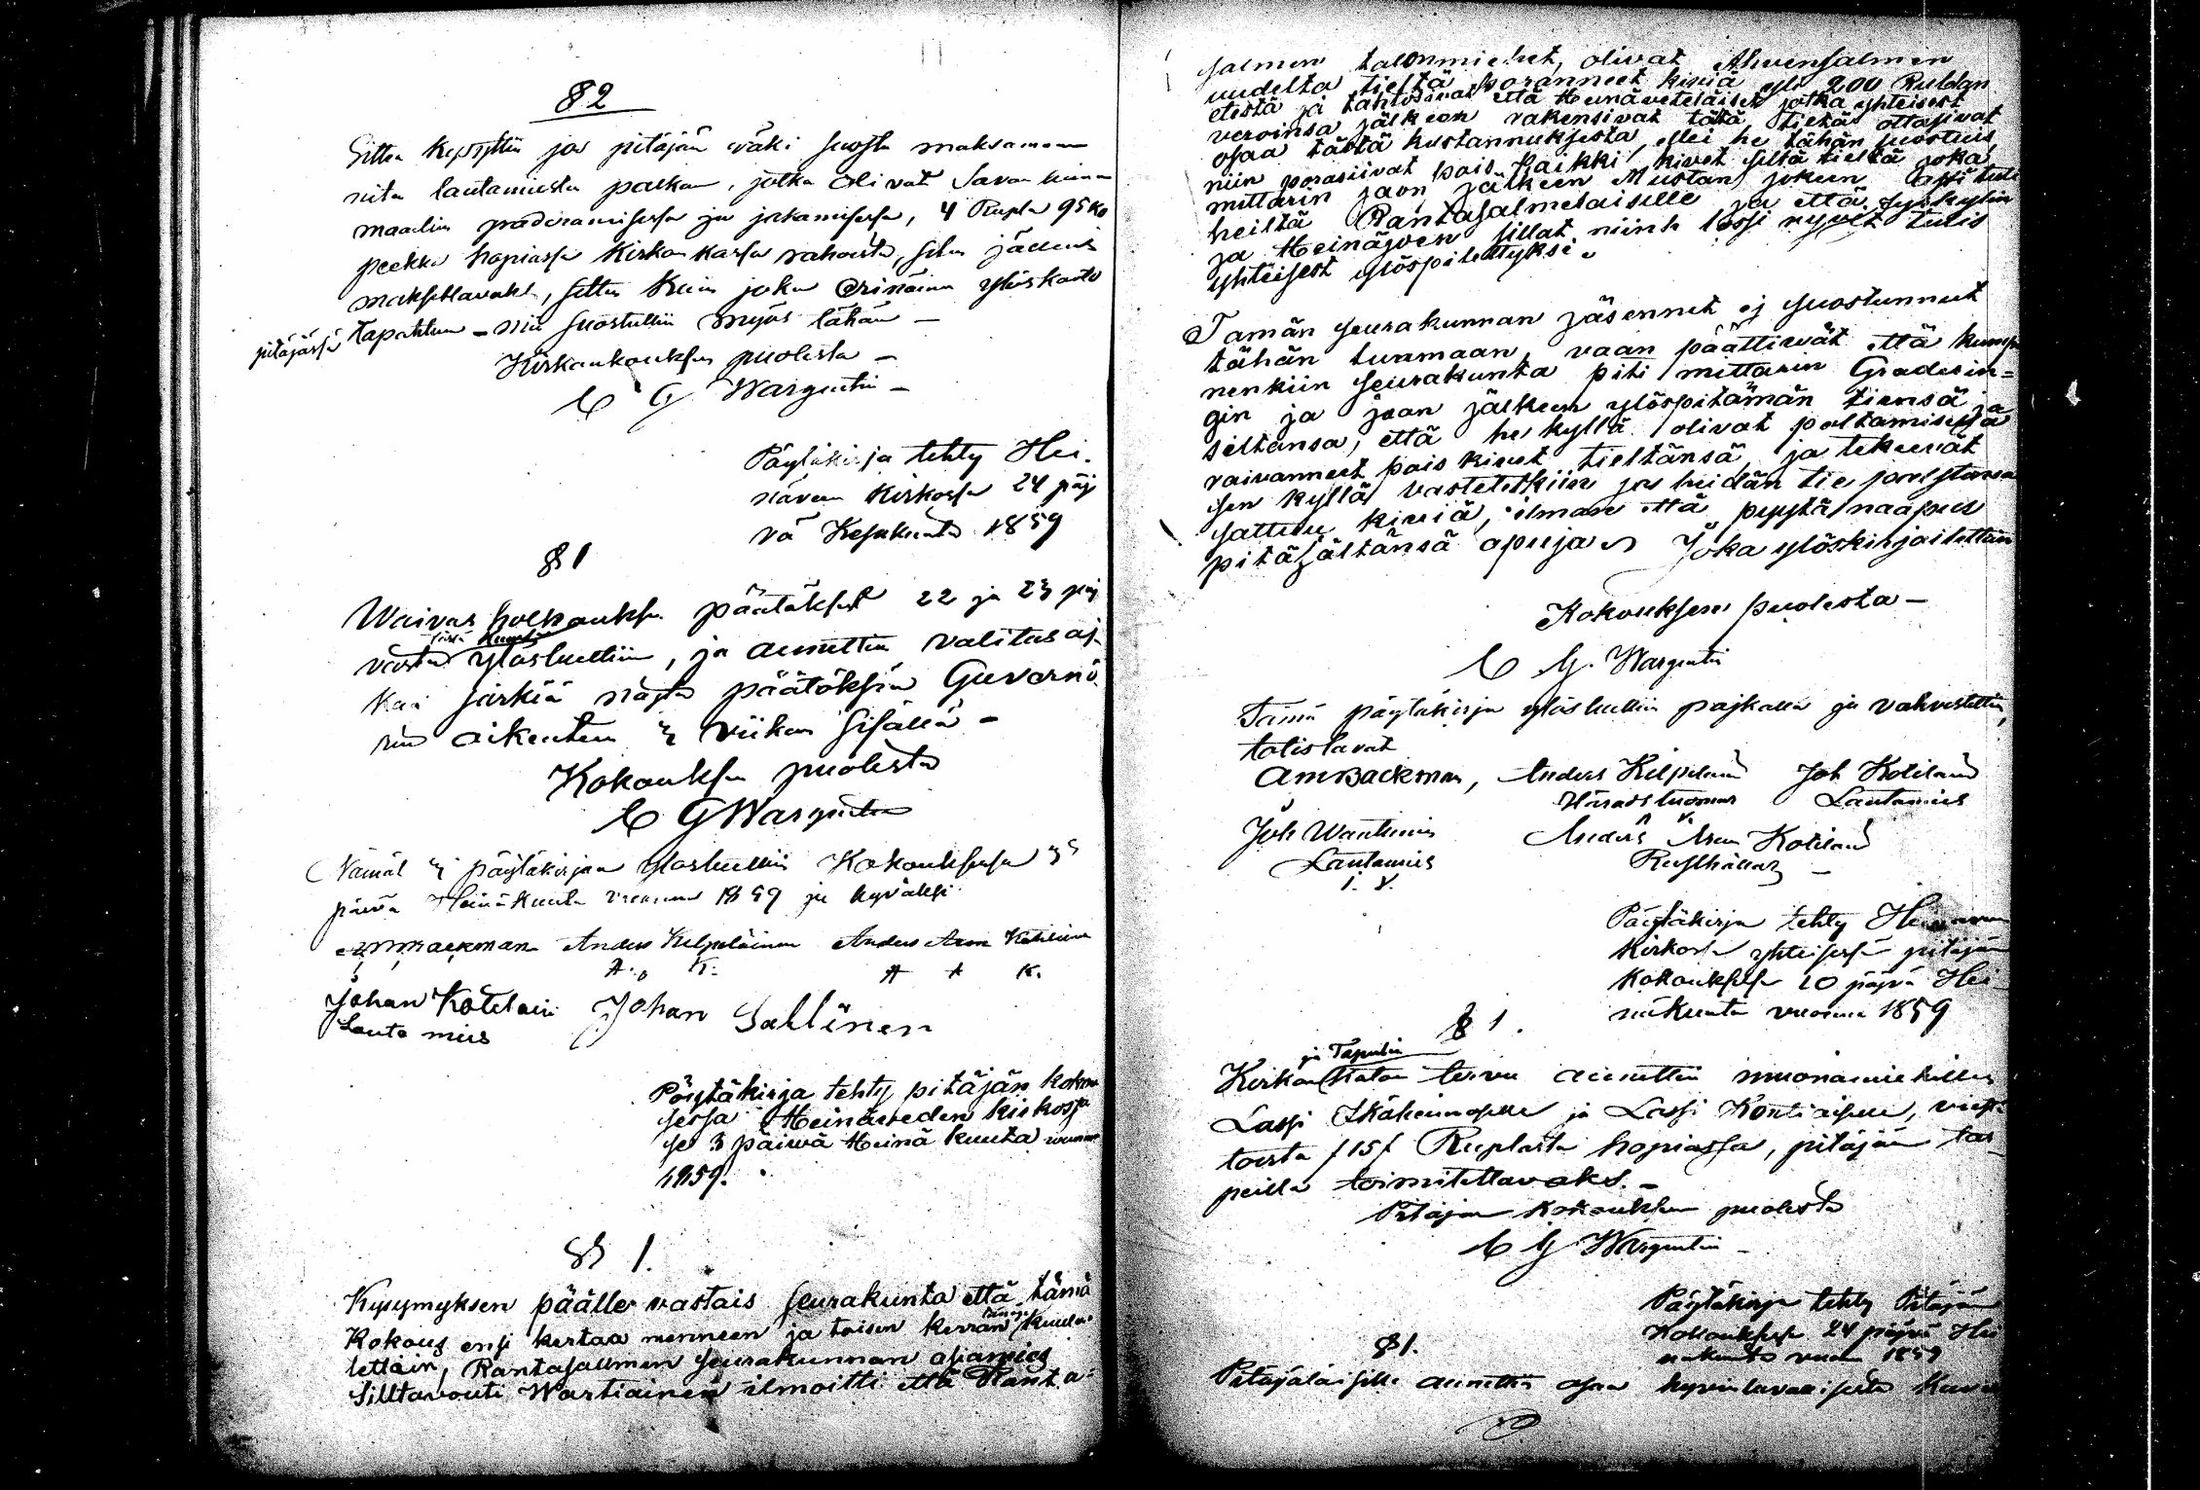 §2
Sitten kysyttiin jos pitäjän väki suostu maksamaan
niitä lautamiesten palkan, jotka olivat Savon
maalin ja jakamisessa, 4 Rupla 95 Ko
peekka hopiassa Kirkon kassa rahoista, sitten
maksettavaksi, sitten Kuin joku Erinäinen ylöskanto
pitäjässä tapahtuu - niin suostuttiin myös tähän -
Kirkonkoukssen puolesta -
C G Wargentin -
Päytäkirja tehty Hei-
näveen Kirkossa 24 päi
vä Kesäkuuta 1859
§1
Waivas holhouksen päätökset 22 ja 23 päi
vasta ylösluettiin, ja annettiin valitus aj-
kaa päätöksiä Guvernö
rin oikeuteen 3 viikon sisällä -
Kokouksen puolesta
C G Wargentin
Nämät 3 päytäkirjaa ylösluettiin Kokouksessa 3s
päivä Heinäkuuta vuonna 1859 ja hyväksi
Anders Kilpeläinen Anders Aron Kotilainen
A. K. A A K.
Johan Kotilain Johan Sallinen
Lauta mies
Pöytäkirja tehty pitäjän kokou
sessa Heinäveden kirkossa
se 3 päiwä Heinä kuuta
1859.
§ 1.
Kysymyksen päälle vastais seurakunta että tämä
Kokous ensi kertaa menneen ja toisen kerran kuulu-
lettain, Rantasalmen seurakunnan asiamies
Silltavouti Wartiainen ilmoitti että Ranta-
salmen talonmiehet, olivat Ahvensalmen
uudelta tieltä poranneet kiviä yli 200 Rublan
etestä ja tahtoisivat että Heinäveteläiset jotka yhteisest
veroinsa jälkeen rakensivat tätä tietä ottasivat
osaa tästä kustannuksesta, Ellei he tähän suostuis
niin porasiivat pois kaikki kivet siltä tieltä joka
mittarin jaon jälkeen Mustan jokeen
heiltä Rantasalmelaisille ja että
ja Heinäjoen sillat niinh tulis
yhteisest ylöspitettyksi.
Tämän seurakunnan jäsennet ej suostunneet
tähän tuumaan, vaan päättivät että kump
nenkiin seurakunta piti mittarin Gradein=
gin ja jaan jälkeen ylöspitämän tiensä ja
siltansa, että he kyllä olivat poltamisella
raivanneet pois kivet tieltänsä ja tekeevät
sen kyllä vastetetkiin jos heidän tie
sattuu kiviä, ilman että pyytä naapur
pitäjältänsä apuja Joka ylöskirjoitettiin
Kokouksen puolesta -
C G. Wargentin
Tämä päytäkirja ylösluettiin pajkalla ja vahvistettiin,
totistavat
AmBackman, Anders Kilpeläinen Joh Kotilain
Häradstuomar Lautamies
Joh Wantinen Anders Aron Kotilain
Lautamies Rusthållar
J. V.
Päytäkirja tehty
Kirkossa yhteisessä pitäjän
Kokouksessa 10 päivä Hei-
näkuuta vuonna 1859
§ 1.
ja Tapulin
Kirkon katon terva annettiin muonamiehille
Lassi Ikäheimoselle ja Lassi Kontiaiselle, viis
toista /15/ Ruplasta hopiassa, pitäjän tar-
peilla toimitettavaks. -
Pitäjän Kokouksen puolesta
C G Wargentin -
Päytäkirja tehty Pitäjän
Kokouksessa 24 päivä Hei
näkuuta vuon 1859
§1.
Pitäjäläisille annettiin